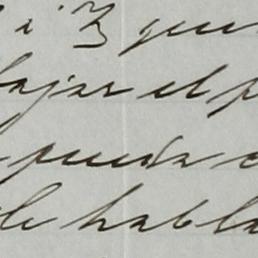 que
bajar el p
pueda
le habla